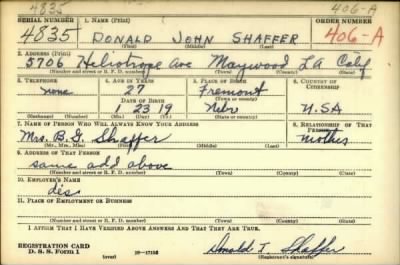 4835 406-A
SERIAL NUMBER 1. NAME (Print) ORDER NUMBER
4835 DONALD JOHN SHAFFER 406-A
(First) (Middle) (Last)
2. ADDRESS (Print)
5706 Heliotrope Ave Maywood LA Calif
(Number and street or R. F. D. number) (Town) (County) (State)
3. TELEPHONE 4. AGE IN YEARS 5. PLACE OF BIRTH 6. COUNTRY OF CITIZENSHIP
none 27 Fremont
DATE OF BIRTH (Town or county)
1 23 19 Nebr U.S.A
(Mo.) (Day) (Yr.) (State or country)
7. NAME OF PERSON WHO WILL ALWAYS KNOW YOUR ADDRESS 8. RELATIONSHIP OF THAT PERSON
Mrs. B.G. Shaffer mother
(Mr., Mrs., Miss) (First) (Middle) (Last)
9. ADDRESS OF THAT PERSON
same add above
(Number and street or R. F. D. number) (Town) (County) (State)
10. EMPLOYER'S NAME
dis
11. PLACE OF EMPLOYMENT OR BUSINESS
(Number and street or R. F. D. number) (Town) (County) (State)
I AFFIRM THAT I HAVE VERIFIED ABOVE ANSWERS AND THAT THEY ARE TRUE.
REGISTRATION CARD
D. S. S. Form 1 (over) Donald J. Shaffer
(Registrant's signature)